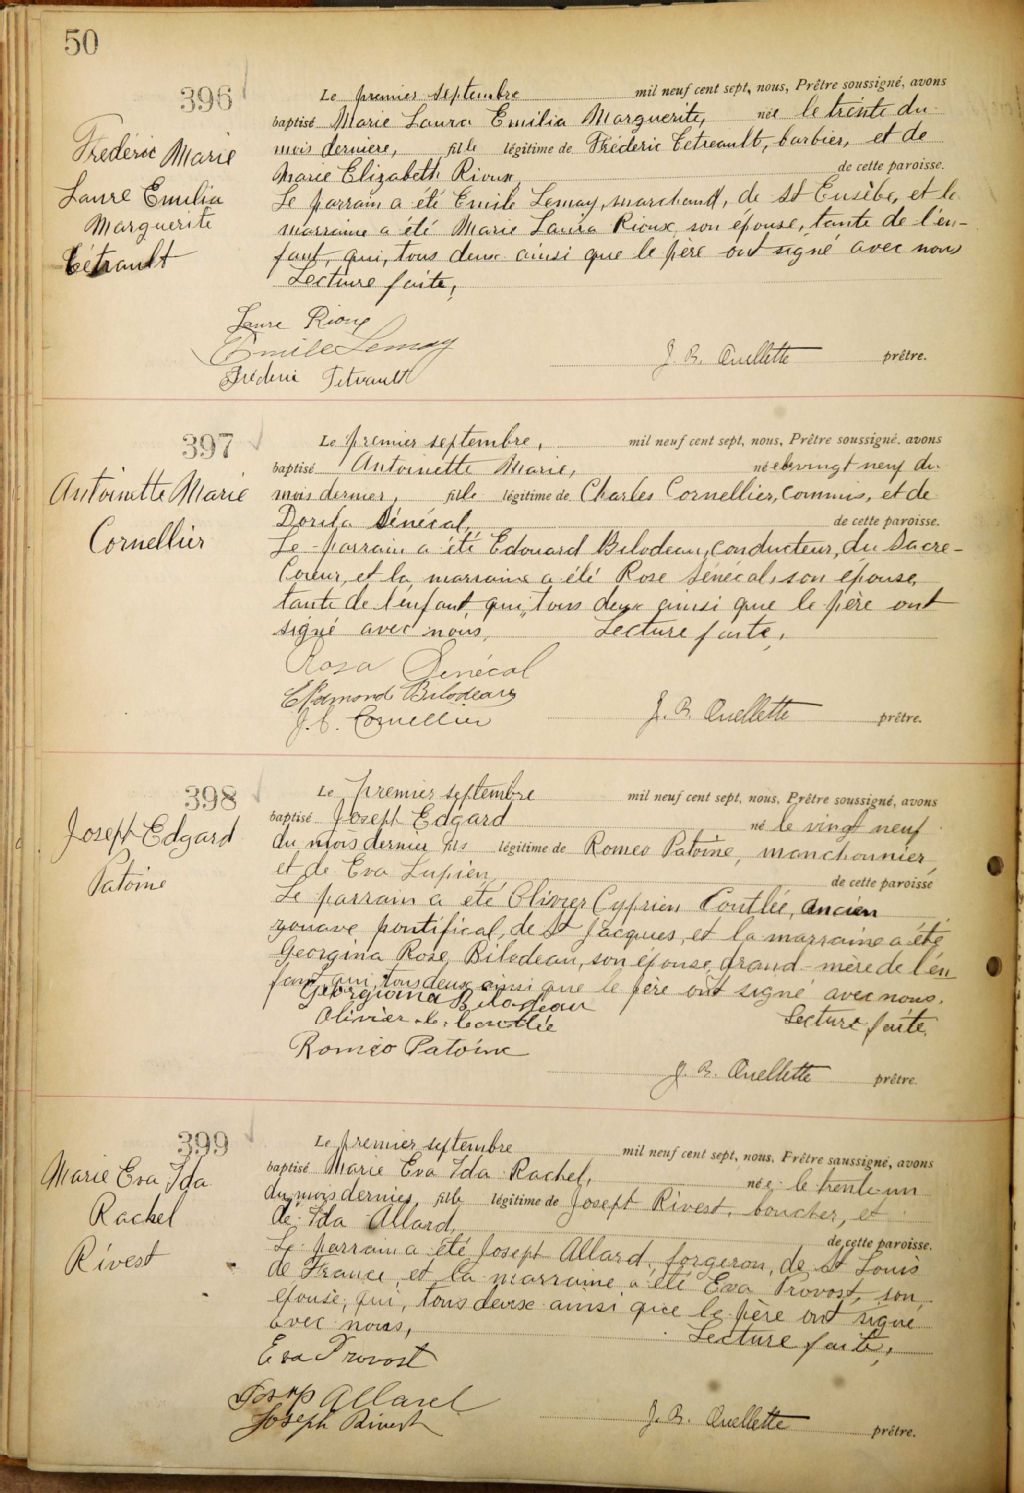 50
396
Frédéric Marie
Laure Emilia
Marguerite
Tétrault
Le premier septembre mil neuf cent sept, nous, Prêtre soussigné, avons
baptisé Marie Laura Emilia Marguerite, née le trente du
mois dernière, fille légitime de Fréderic Tetreault, barbier, et de
Marie Elizabeth Rioux, de cette paroisse.
Le parrain a été Emile Lemay, marchand, de St Eusèbe, et la
marraine a été Marie Laura Rioux, son épouse, tante de l'en-
fant, qui, tous deux ainsi que le père ont signé avec nous
Lecture faite,
Laure Rioux
Emile Lemay
Fréderic Tetreault
J. B. Ouellette prêtre.
397
Antoinette Marie
Cornellier
Le premier septembre, mil neuf cent sept, nous, Prêtre soussigné, avons
baptisé Antoinette Marie, née le vingt neuf du
mois dernier, fille légitime de Charles Cornellier, commis, et de
Dorila Sénécal, de cette paroisse.
Le parrain a été Edouard Bilodeau, conducteur, du Sacré-
Coeur, et la marraine a été Rose Sénécal, son épouse,
tante de l'enfant, qui, tous deux ainsi que le père ont
signé avec nous, Lecture faite,
Rosa Senécal
Edmond Bilodeau
J. C. Cornellier
J. B. Ouellette prêtre.
398
Joseph Edgard
Patoine
Le premier septembre mil neuf cent sept, nous, Prêtre soussigné, avons
baptisé Joseph Edgard né le vingt neuf
du mois dernier fils légitime de Romeo Patoine, manchonnier,
et de Eva Lupien, de cette paroisse
Le parrain a été Olivier Cyprien Coutlée, ancien
zouave pontifical, de St Jacques, et la marraine a été
Georgina Rose Bilodeau, son épouse, grand-mère de l'en
fant, qui, tous deux ainsi que le père ont signé avec nous.
Georgiana Bilodeau
Olivier C. Coutlée Lecture faite.
Roméo Patoine
J. B. Ouellette prêtre.
399
Marie Eva Ida
Rachel
Rivest
Le premier septembre mil neuf cent sept, nous, Prêtre soussigné, avons
baptisé Marie Eva Ida Rachel, née le trente-un
du mois dernier, fille légitime de Joseph Rivest, boucher, et
de Ida Allard, de cette paroisse.
Le parrain a été Joseph Allard, forgeron, de St Louis
de France, et la marraine a été Eva Provost, son
épouse, qui, tous deux ainsi que le père ont signé
avec nous, Lecture faite,
Eva Provost
Josep Allard
Joseph Rivest
J. B. Ouellette prêtre.